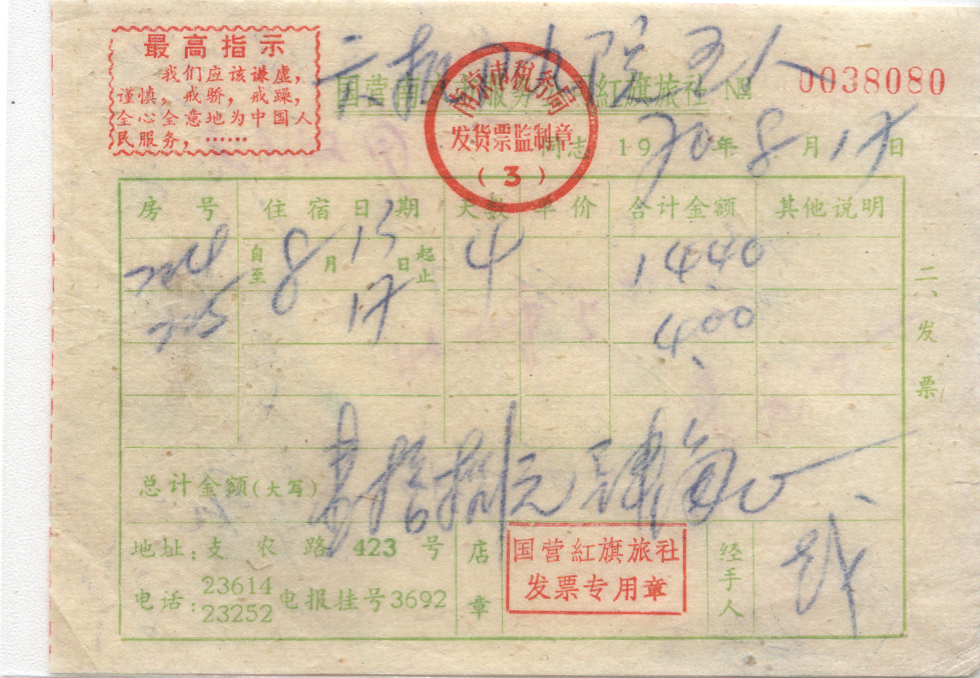 最高指示
我们应该谦虚,
谨慎,戒骄,戒躁,
全心全意地为中国人
民服务,……
五人
国营南 服务 红旗旅社 №
0038080
南京市税务局
发货票监制章
(3)
同志 1970年8月17日
房号 住宿日期 天数 单价 合计金额 其他说明
704 自至 8月13日起止 4 14.40
705 17 4.00
二、发票
总计金额(大写) 壹拾捌元肆角
地址:支农路423号
电话:23614
23252 电报挂号3692
店章
国营红旗旅社
发票专用章
经手人